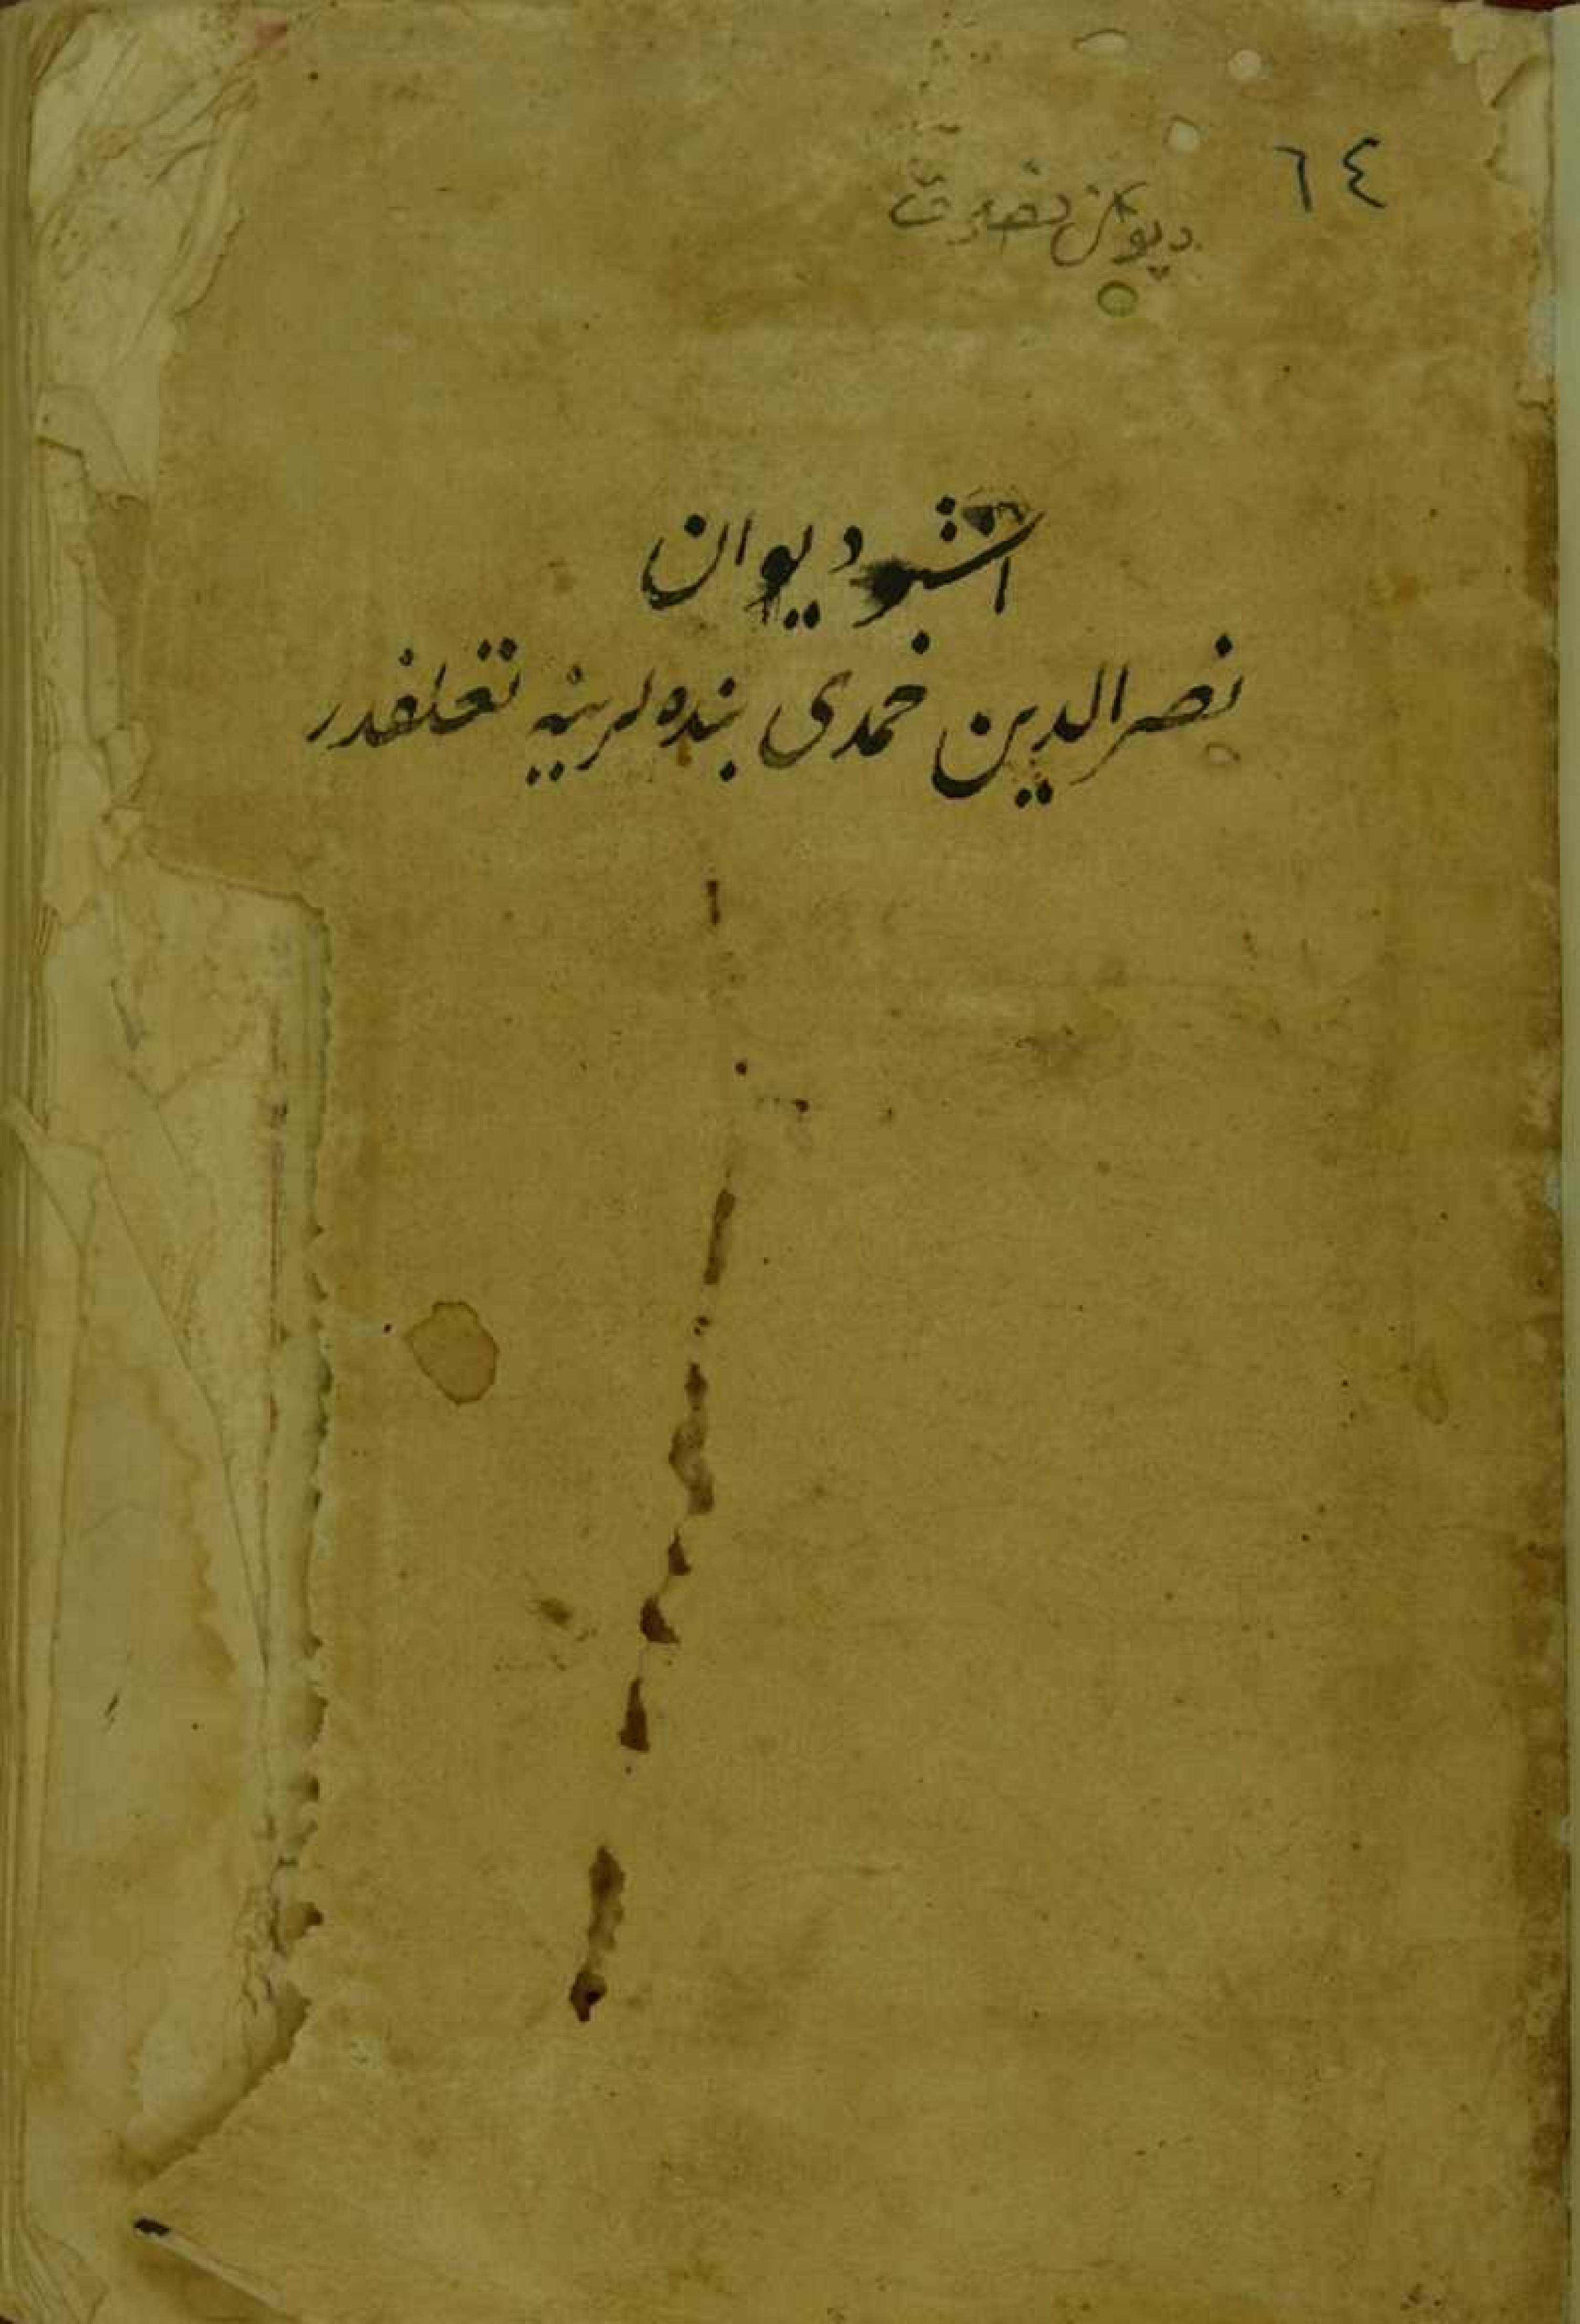 ٦٤
ديوان نصرت
اشبو ديوان
نصر الدين حمدى بنده لرينه تعلقدر